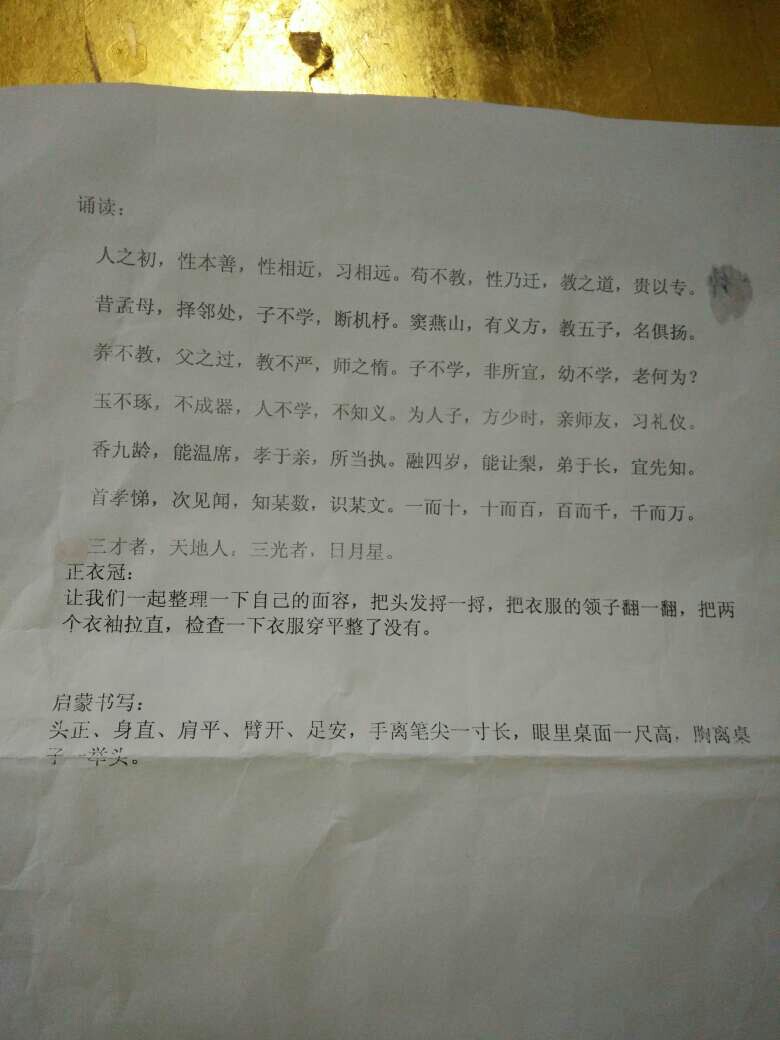 诵读：
人之初，性本善，性相近，习相远。苟不教，性乃迁，教之道，贵以专。
昔孟母，择邻处，子不学，断机杼。窦燕山，有义方，教五子，名俱扬。
养不教，父之过，教不严，师之惰。子不学，非所宜，幼不学，老何为？
玉不琢，不成器，人不学，不知义。为人子，方少时，亲师友，习礼仪。
香九龄，能温席，孝于亲，所当执。融四岁，能让梨，弟于长，宜先知。
首孝悌，次见闻，知某数，识某文。一而十，十而百，百而千，千而万。
三才者，天地人。三光者，日月星。
正衣冠：
让我们一起整理一下自己的面容，把头发捋一捋，把衣服的领子翻一翻，把两
个衣袖拉直，检查一下衣服穿平整了没有。
启蒙书写：
头正、身直、肩平、臂开、足安，手离笔尖一寸长，眼里桌面一尺高，胸离桌
子一举头。